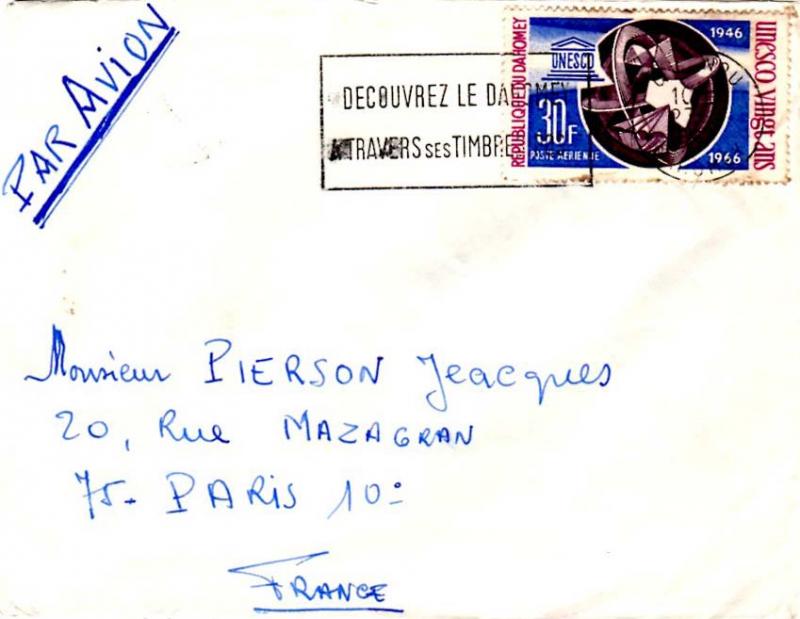 PAR AVION
DECOUVREZ LE DAHOMEY
A TRAVERS SES TIMBRES
REPUBLIQUE DU DAHOMEY
UNESCO
30F
POSTE AERIENNE
1946
1966
UNESCO VINGT ANS
10
Monsieur PIERSON Jeacques
20, Rue MAZAGRAN
75- PARIS 10e
FRANCE